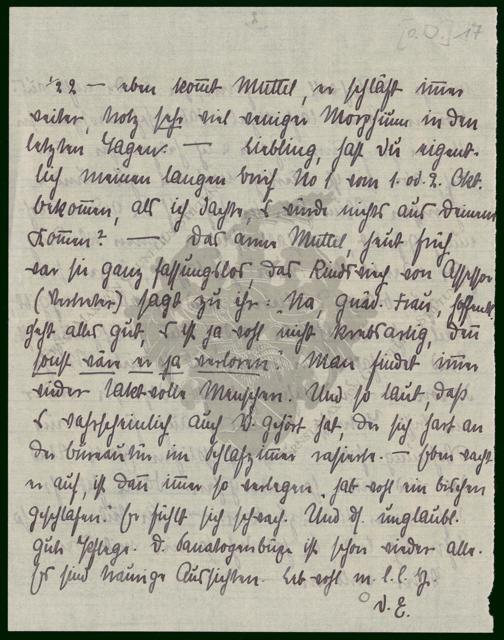 2
[o. D.] 17
1/2 2 — eben kommt Muttel, er schläft immer
weiter, trotz sehr viel weniger Morphium in den
letzten Tagen. — Liebling, hast du eigent-
lich meinen langen Brief No 1 vom 1. od. 2. Okt.
bekommen, als ich dachte, es würde nichts aus Deinem
Kommen? — Das arme Muttel, heut früh
war sie ganz fassungslos, das Rindsviech von Assessor
(Vertreter) sagt zu ihr: "Na, gnäd. Frau, hoffentl.
geht alles gut, es ist ja wohl nicht krebsartig, denn
sonst wär er ja verloren." Man findet immer
wieder taktvolle Menschen. Und so laut, daß
es wahrscheinlich auch V. gehört hat, der sich hart an
der Bureautür im Schlafzimmer rasierte. — Eben wacht
er auf, ist dann immer so verlegen, "hab wohl ein bischen
geschlafen." Er fühlt sich schwach. Und ds. unglaubl.
gute Pflege. D. Sanatogenbüxe ist schon wieder alle.
Es sind traurige Aussichten. Leb wohl m. l. l.
D. E.